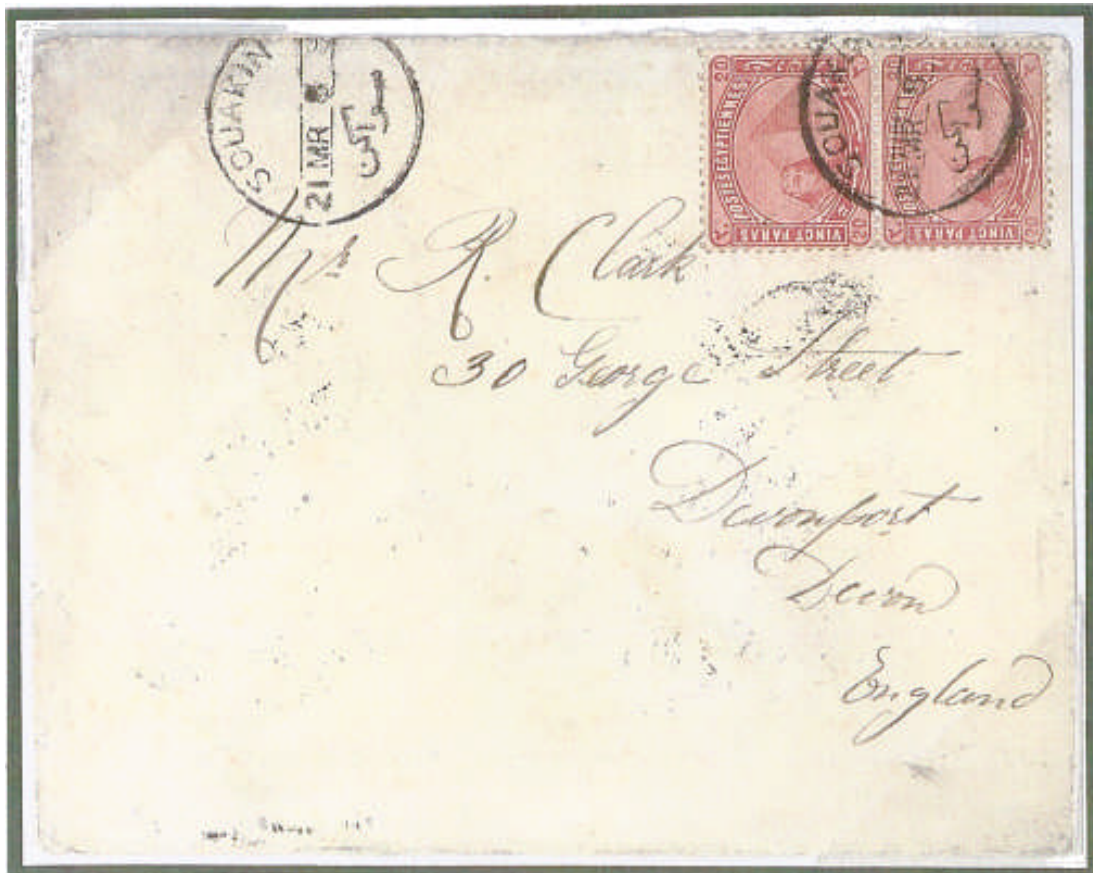 SOUAKIN
21 MR
سواكن
20
POSTES EGYPTIENNES
VINGT PARAS
20
SOUAKIN
MR
سواكن
VINGT PARAS
Mrs R. Clark
30 George Street
Devonport
Devon
England